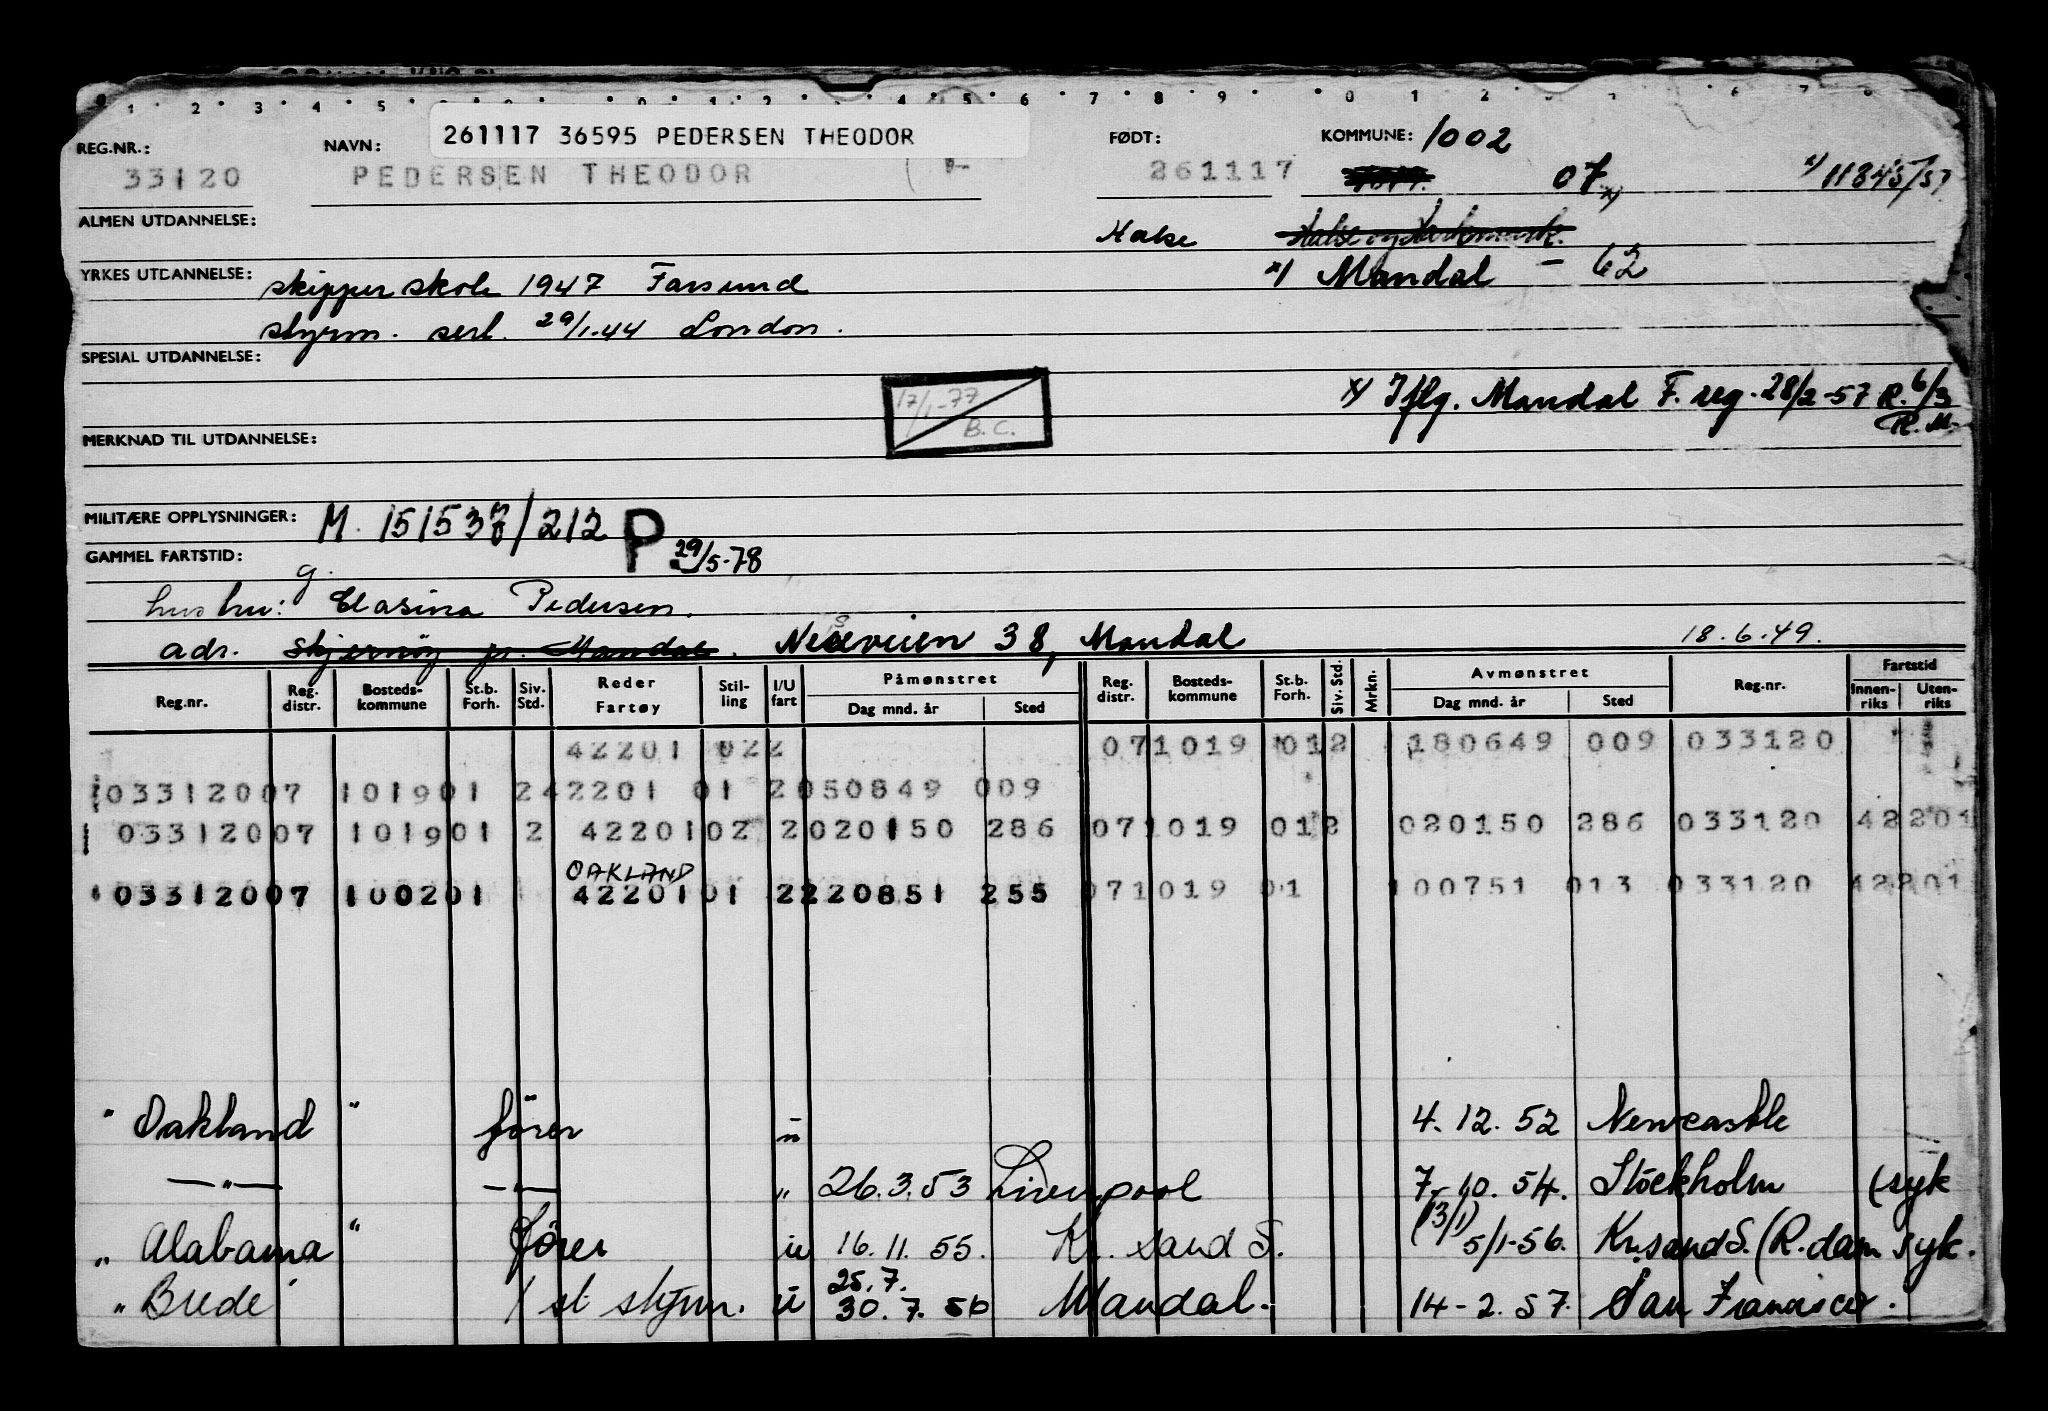 261117 36595 PEDERSEN THEODOR
REG.NR.: NAVN: FØDT: KOMMUNE: 1002
33120 PEDERSEN THEODOR 261117 07 x) x) 11845/57
ALMEN UTDANNELSE:
Halse Halse og Harkmark.
YRKES UTDANNELSE: skipperskole 1947 Farsund x) Mandal - 62
styrm. sert. 29/1.44 London.
SPESIAL UTDANNELSE:
17/1-77 B.C.
x) Iflg. Mandal F. reg. 28/2-57 R. 6/3
R. M.
MERKNAD TIL UTDANNELSE:
MILITÆRE OPPLYSNINGER: M. 151537/212 P 29/5-78
GAMMEL FARTSTID:
g.
hustru: Clasina Pedersen.
adr. Skjernøy pr. Mandal. Nesveien 38, Mandal 18.6.49.
Reg.nr. Reg. distr. Bosteds-kommune St.b. Forh. Siv. Std. Reder Fartøy Stil-ling I/U fart Påmønstret Dag mnd. år Sted Reg. distr. Bosteds-kommune St.b. Forh. Siv. Std. Mrkn. Avmønstret Dag mnd. år Sted Reg.nr. Fartstid Innen-riks Uten-riks
42201 022 071019 012 180649 009 033120
03312007 101901 242201 01 2050849 009
03312007 101901 2 4220102 2020150 286 071019 012 020150 286 033120 42201
OAKLAND
03312007 100201 4220101 2220851 255 071019 01 100751 013 033120 42201
" Oakland " fører u 4.12.52 Newcastle
—"— —"— " 26.3.53 Liverpool 7-10.54. Stockholm (syk
" Alabama " fører u 16.11.55. Kr.sand S. (3/1) 5/1-56. Kr.sand S. (R.dam syk.
" Brede 1st styrm. u 25.7. 30.7.56 Mandal. 14-2.57. San Francisco.